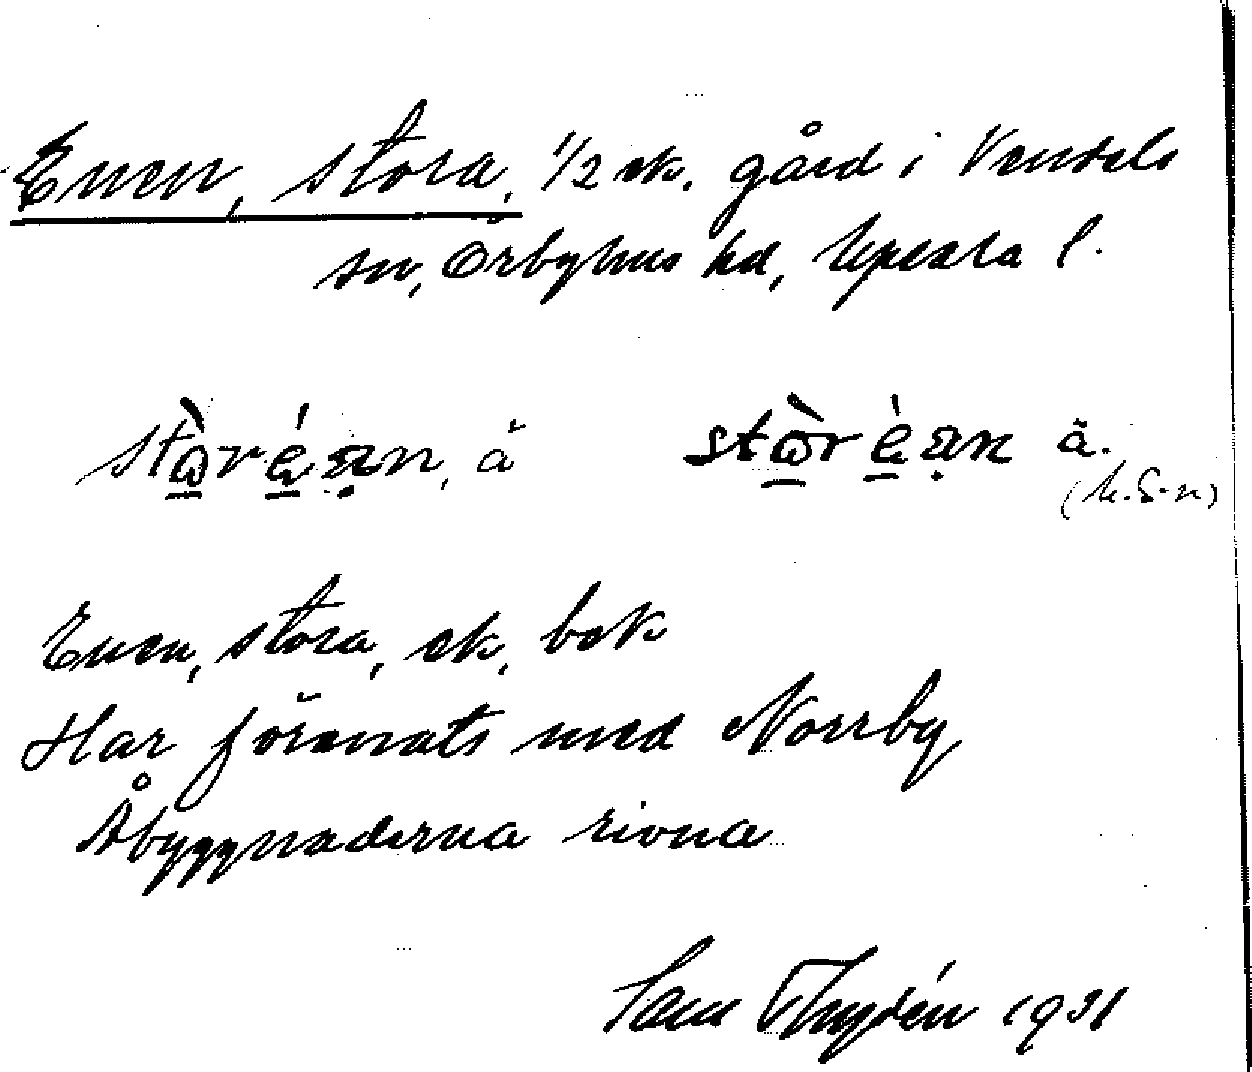 Enen, stora, 1/2 ek. gård i Vendels
sn, Örbyhus hd, Upsala l.
stὼ̲ré̲ạn, å stὼ̲rè̲ạn å.
Enen, stora, ek, bok
Har förenats med Norrby
Åbyggnaderna rivna
Sam Thydén 1931